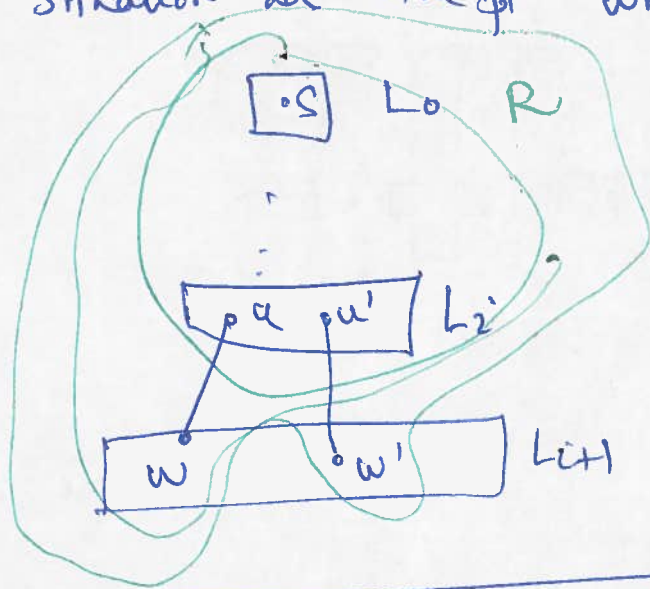 s L₀ R
u u' Lᵢ
w w' Lᵢ₊₁